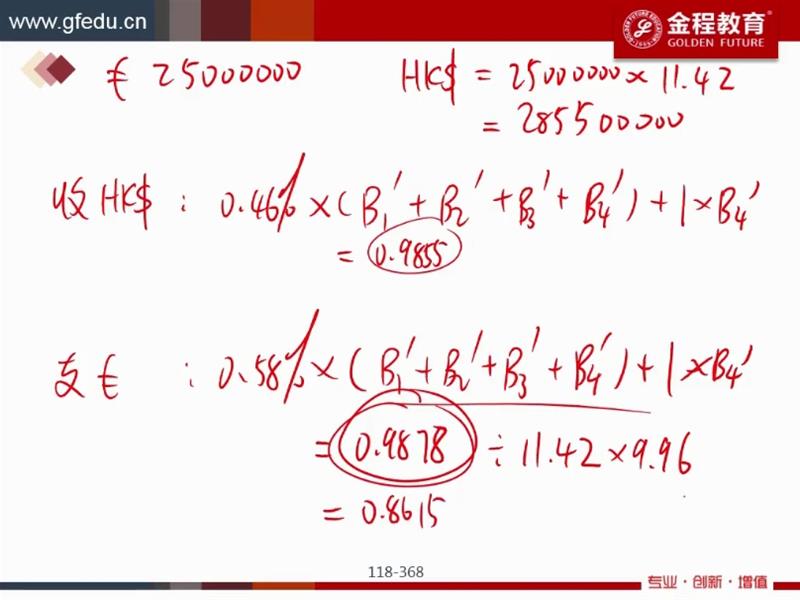 www.gfedu.cn
金程教育
GOLDEN FUTURE
€ 25000000
HK$ = 25000000 × 11.42
= 285500000
收 HK$ : 0.46% × ( B₁′ + B₂′ + B₃′ + B₄′ ) + 1 × B₄′
= 0.9855
支 € : 0.58% × ( B₁′ + B₂′ + B₃′ + B₄′ ) + 1 × B₄′
= 0.9878 ÷ 11.42 × 9.96
= 0.8615
118-368
专业·创新·增值